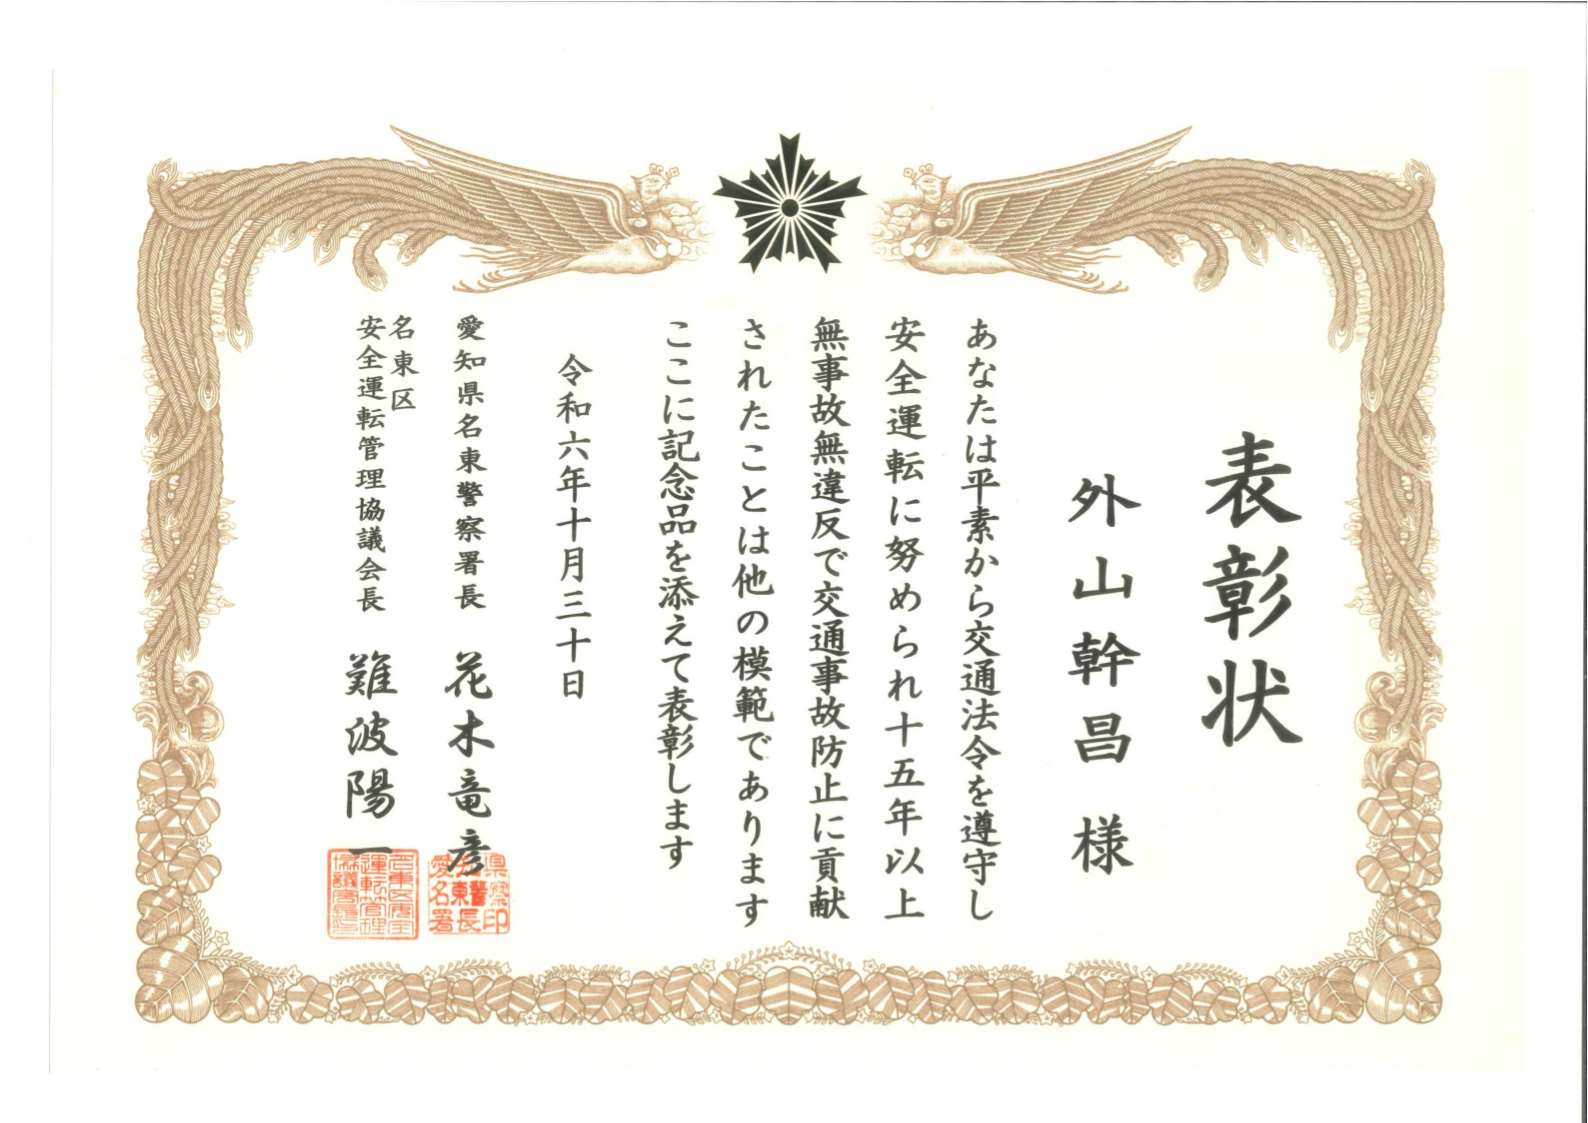 表彰状
外山幹昌様
あなたは平素から交通法令を遵守し
安全運転に努められ十五年以上
無事故無違反で交通事故防止に貢献
されたことは他の模範であります
ここに記念品を添えて表彰します
令和六年十月三十日
愛知県名東警察署長 花木竜彦
名東区
安全運転管理協議会長 難波陽一